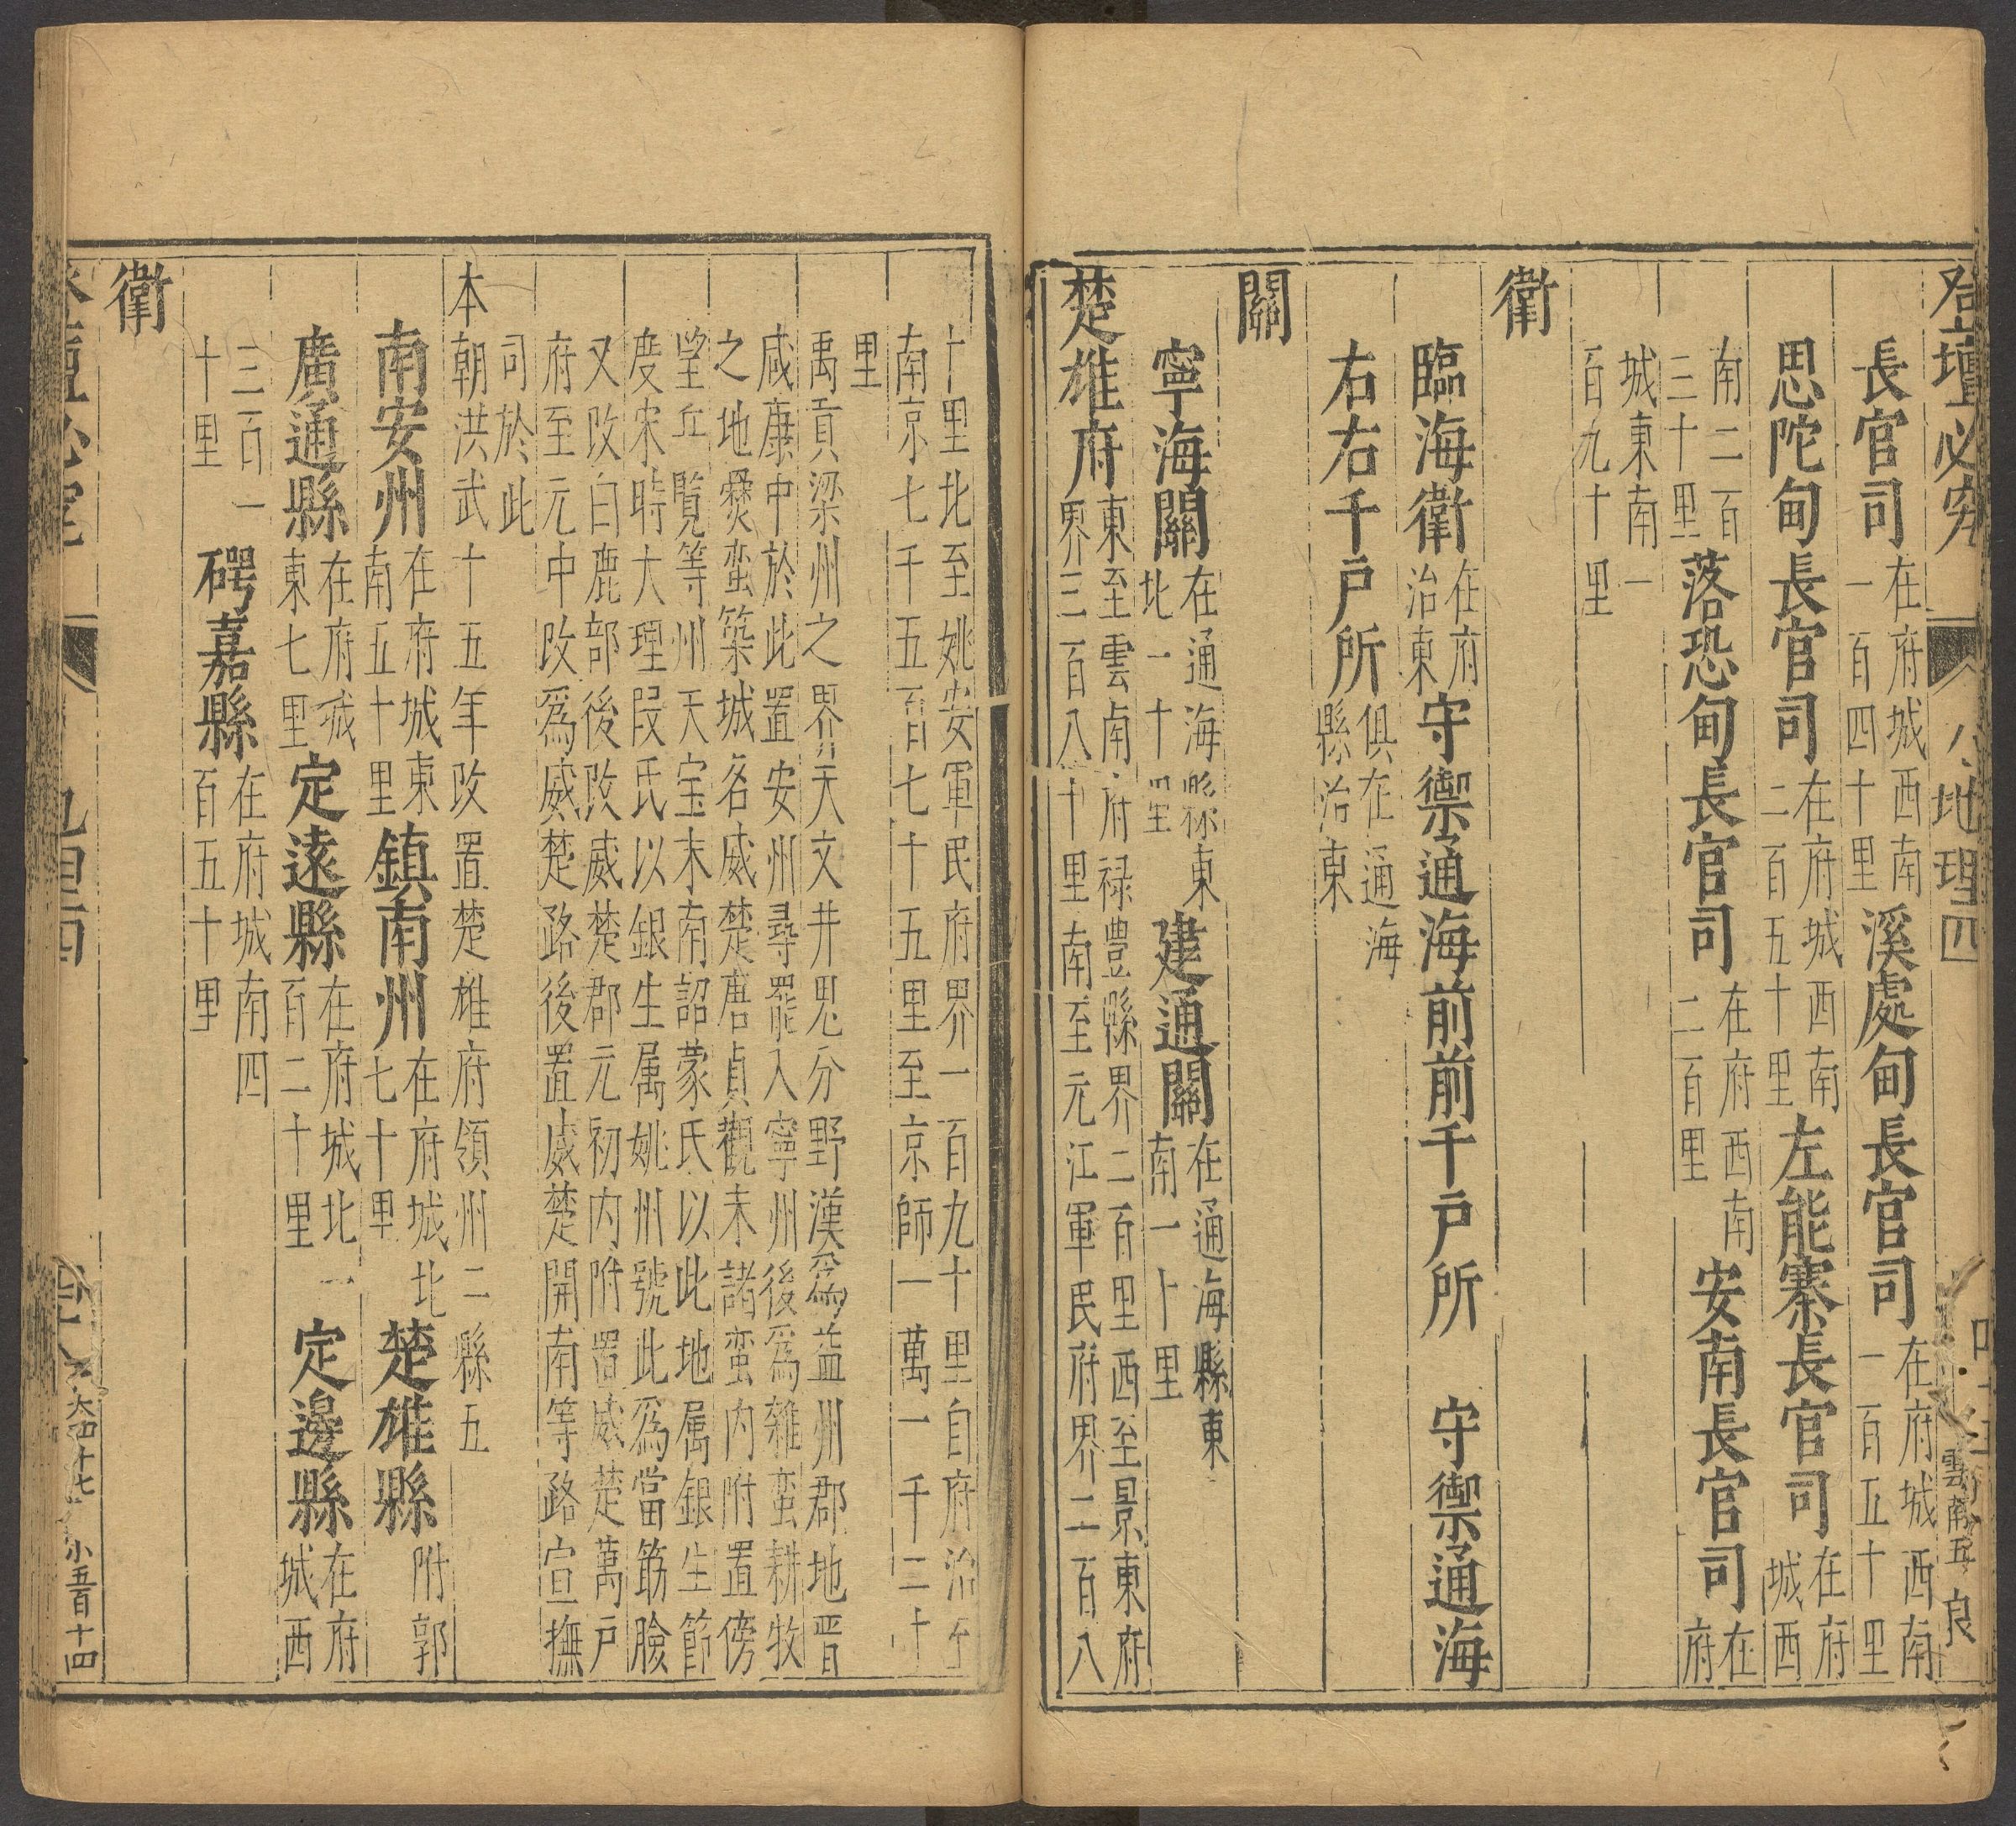 登壇必究 八 地理四 雲南五 良
長官司在府城西南一百四十里溪處甸長官司在府城西南一百五十里
思陀甸長官司在府城西南二百五十里左能寨長官司在府城西
南二百三十里落恐甸長官司在府西南二百里安南長官司在府
城東南一百九十里
衛
臨海衛在府治東守禦通海前前千戶所 守禦通海
右右千戶所俱在通海縣治東
關
寧海關在通海縣東北一十里建通關在通海縣東南一十里
楚雄府東至雲南府祿豊縣界二百里西至景東府界三百八十里南至元江軍民府界二百八
十里北至姚安軍民府界一百九十里自府治至
南京七千五百七十五里至京師一萬一千二十
里
禹貢梁州之界天文井鬼分野漢爲益州郡地晋
咸康中於此置安州尋罷入寧州後爲雜蛮耕牧
之地爨蛮築城名威楚唐貞觀末諸蛮內附置傍
望丘覽等州天宝末南詔蒙氏以此地属銀生節
度宋時大理段氏以銀生属姚州號此爲當筯瞼
又改白鹿部後改威楚郡元初内附置威楚萬戶
府至元中改爲威楚路後置威楚開南等路宣撫
司於此
本朝洪武十五年改置楚雄府領州二縣五
南安州在府城東南五十里鎮南州在府城北七十里楚雄縣附郭
廣通縣在府城東七里定遠縣在府城北一百二十里定邊縣在府城西
三百一十里碍嘉縣在府城南四百五十里
衛
大四十七 小五百十四